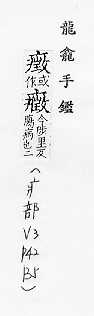 龍龕手鑑
或作癥今陟里反病也二
(疒部 V3 P42 B5)